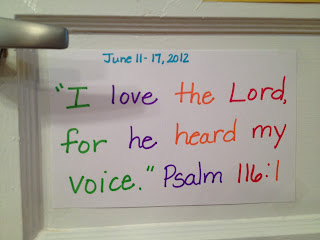 June 11-17, 2012
"I love the Lord,
for he heard my
voice." Psalm 116:1